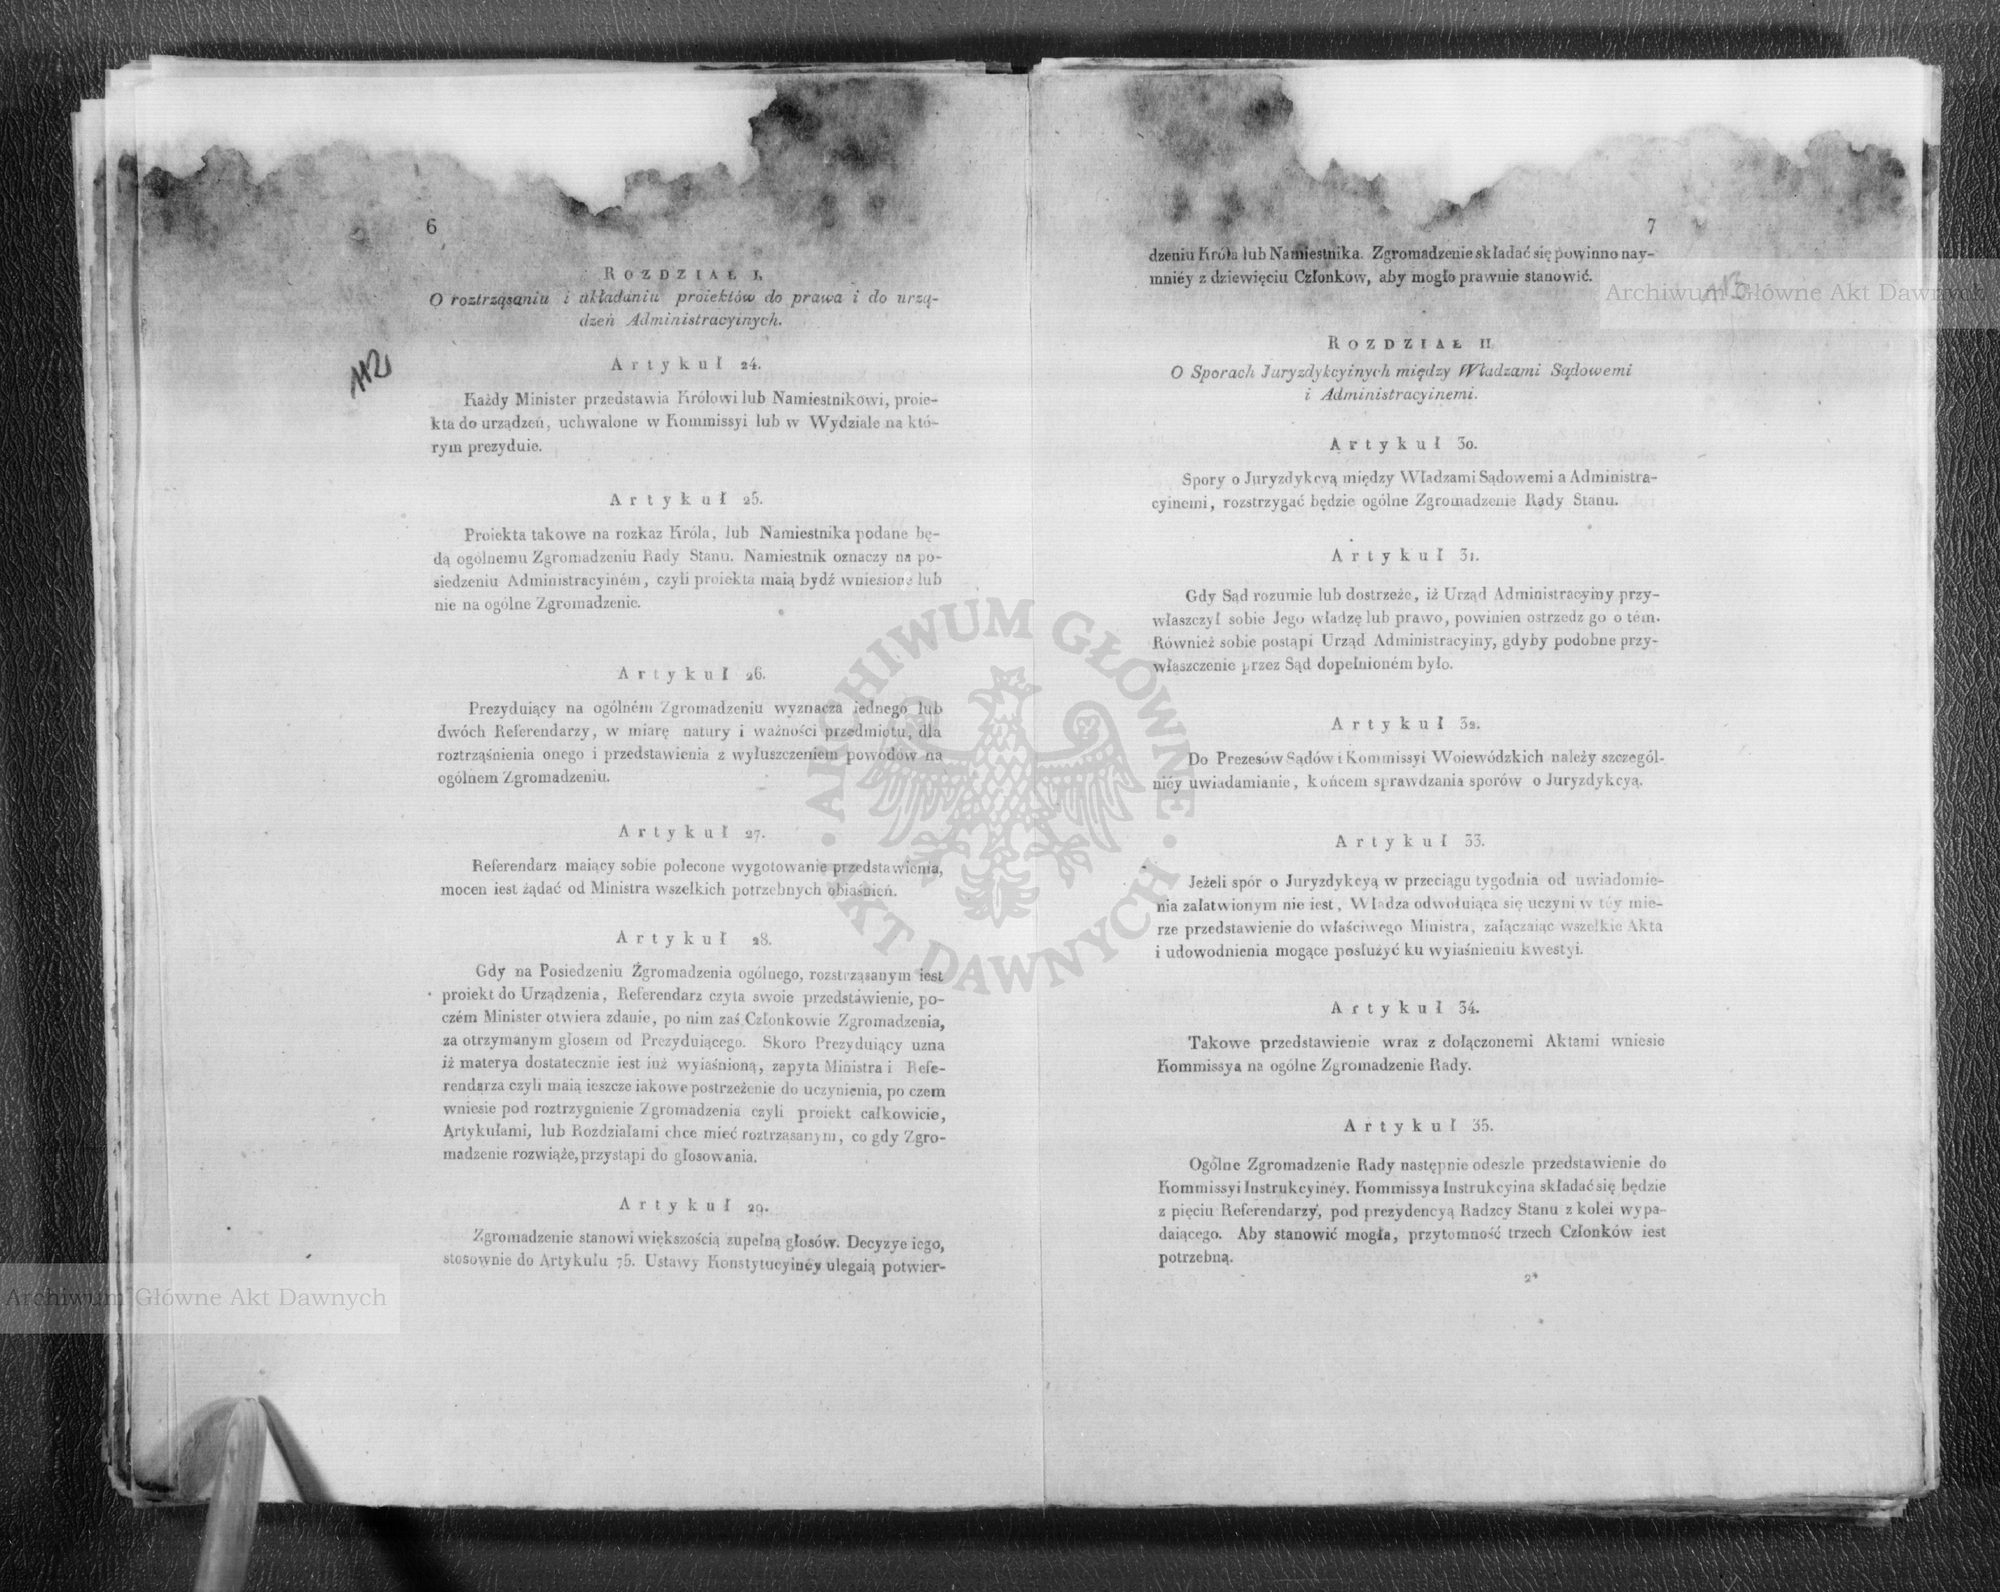 6
ROZDZIAŁ I.
O roztrząsaniu i układaniu proiektów do prawa i do urzą-
dzeń Administracyinych.
112
Artykuł 24.
Każdy Minister przedstawia Królowi lub Namiestnikowi, proie-
kta do urządzeń, uchwalone w Kommissyi lub w Wydziale na któ-
rym prezyduie.
Artykuł 25.
Proiekta takowe na rozkaz Króla, lub Namiestnika podane bę-
dą ogólnemu Zgromadzeniu Rady Stanu. Namiestnik oznaczy na po-
siedzeniu Administracyiném, czyli proiekta maią bydź wniesione lub
nie na ogólne Zgromadzenie.
Artykuł 26.
Prezyduiący na ogólném Zgromadzeniu wyznacza iednego lub
dwóch Referendarzy, w miarę natury i ważności przedmiotu, dla
roztrząśnienia onego i przedstawienia z wyłuszczeniem powodów na
ogólnem Zgromadzeniu.
Artykuł 27.
Referendarz maiący sobie polecone wygotowanie przedstawienia,
mocen iest żądać od Ministra wszelkich potrzebnych obiaśnień.
Artykuł 28.
Gdy na Posiedzeniu Zgromadzenia ogólnego, rozstrząsanym iest
proiekt do Urządzenia, Referendarz czyta swoie przedstawienie, po-
czém Minister otwiera zdanie, po nim zaś Członkowie Zgromadzenia,
za otrzymanym głosem od Prezyduiącego. Skoro Prezyduiący uzna
iż materya dostatecznie iest iuż wyiaśnioną, zapyta Ministra i Refe-
rendarza czyli maią ieszcze iakowe postrzeżenie do uczynienia, po czem
wniesie pod roztrzygnienie Zgromadzenia czyli proiekt całkowicie,
Artykułami, lub Rozdziałami chce mieć roztrząsanym, co gdy Zgro-
madzenie rozwiąże, przystąpi do głosowania.
Artykuł 29.
Zgromadzenie stanowi większością zupełną głosów. Decyzye iego,
stosownie do Artykułu 75. Ustawy Konstytucyinéy ulegaią potwier-
7
dzeniu Króla lub Namiestnika. Zgromadzenie składać się powinno nay-
mniéy z dziewięciu Członków, aby mogło prawnie stanowić.
113
ROZDZIAŁ II
O Sporach Juryzdykcyinych między Władzami Sądowemi
i Administracyinemi.
Artykuł 30.
Spory o Juryzdykcyą między Władzami Sądowemi a Administra-
cyinemi, rozstrzygać będzie ogólne Zgromadzenie Rady Stanu.
Artykuł 31.
Gdy Sąd rozumie lub dostrzeże, iż Urząd Administracyiny przy-
właszczył sobie Jego władzę lub prawo, powinien ostrzedz go o tém.
Również sobie postąpi Urząd Administracyiny, gdyby podobne przy-
właszczenie przez Sąd dopełnioném było.
Artykuł 32.
Do Prezesów Sądów i Kommissyi Woiewódzkich należy szczegól-
niéy uwiadamianie, końcem sprawdzania sporów o Juryzdykcyą.
Artykuł 33.
Jeżeli spór o Juryzdykcyą w przeciągu tygodnia od uwiadomie-
nia załatwionym nie iest, Władza odwołuiąca się uczyni w téy mie-
rze przedstawienie do właściwego Ministra, załączaiąc wszelkie Akta
i udowodnienia mogące posłużyć ku wyiaśnieniu kwestyi.
Artykuł 34.
Takowe przedstawienie wraz z dołączonemi Aktami wniesie
Kommissya na ogólne Zgromadzenie Rady.
Artykuł 35.
Ogólne Zgromadzenie Rady następnie odeszle przedstawienie do
Kommissyi Instrukcyinéy. Kommissya Instrukcyina składać się będzie
z pięciu Referendarzy, pod prezydencyą Radzcy Stanu z kolei wypa-
daiącego. Aby stanowić mogła, przytomność trzech Członków iest
potrzebną.
2*
Archiwum Główne Akt Dawnych
Archiwum Główne Akt Dawnych
ARCHIWUM GŁÓWNE
AKT DAWNYCH